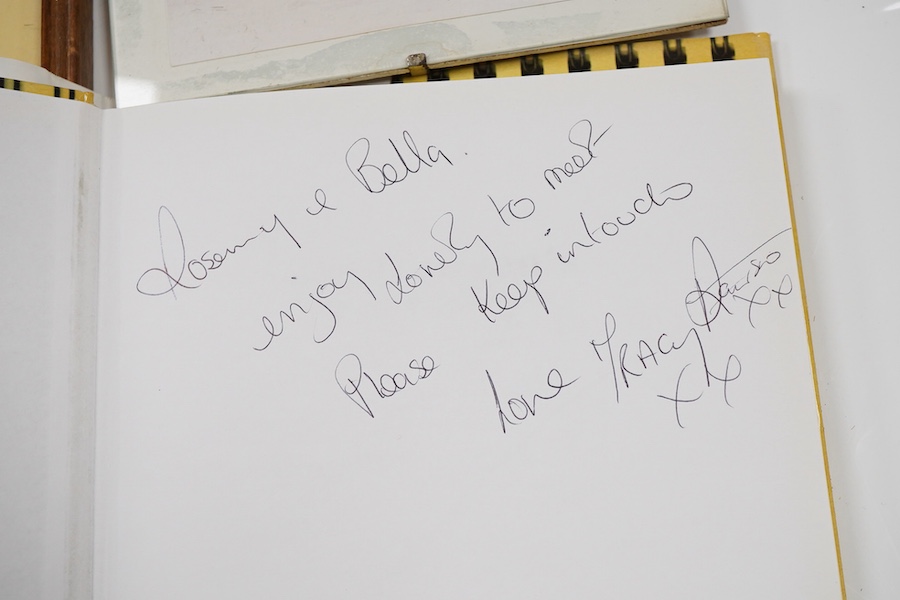 Rosemary & Bella.
enjoy Lovely to meet
Please Keep in touch
Love TRACY
xx xx